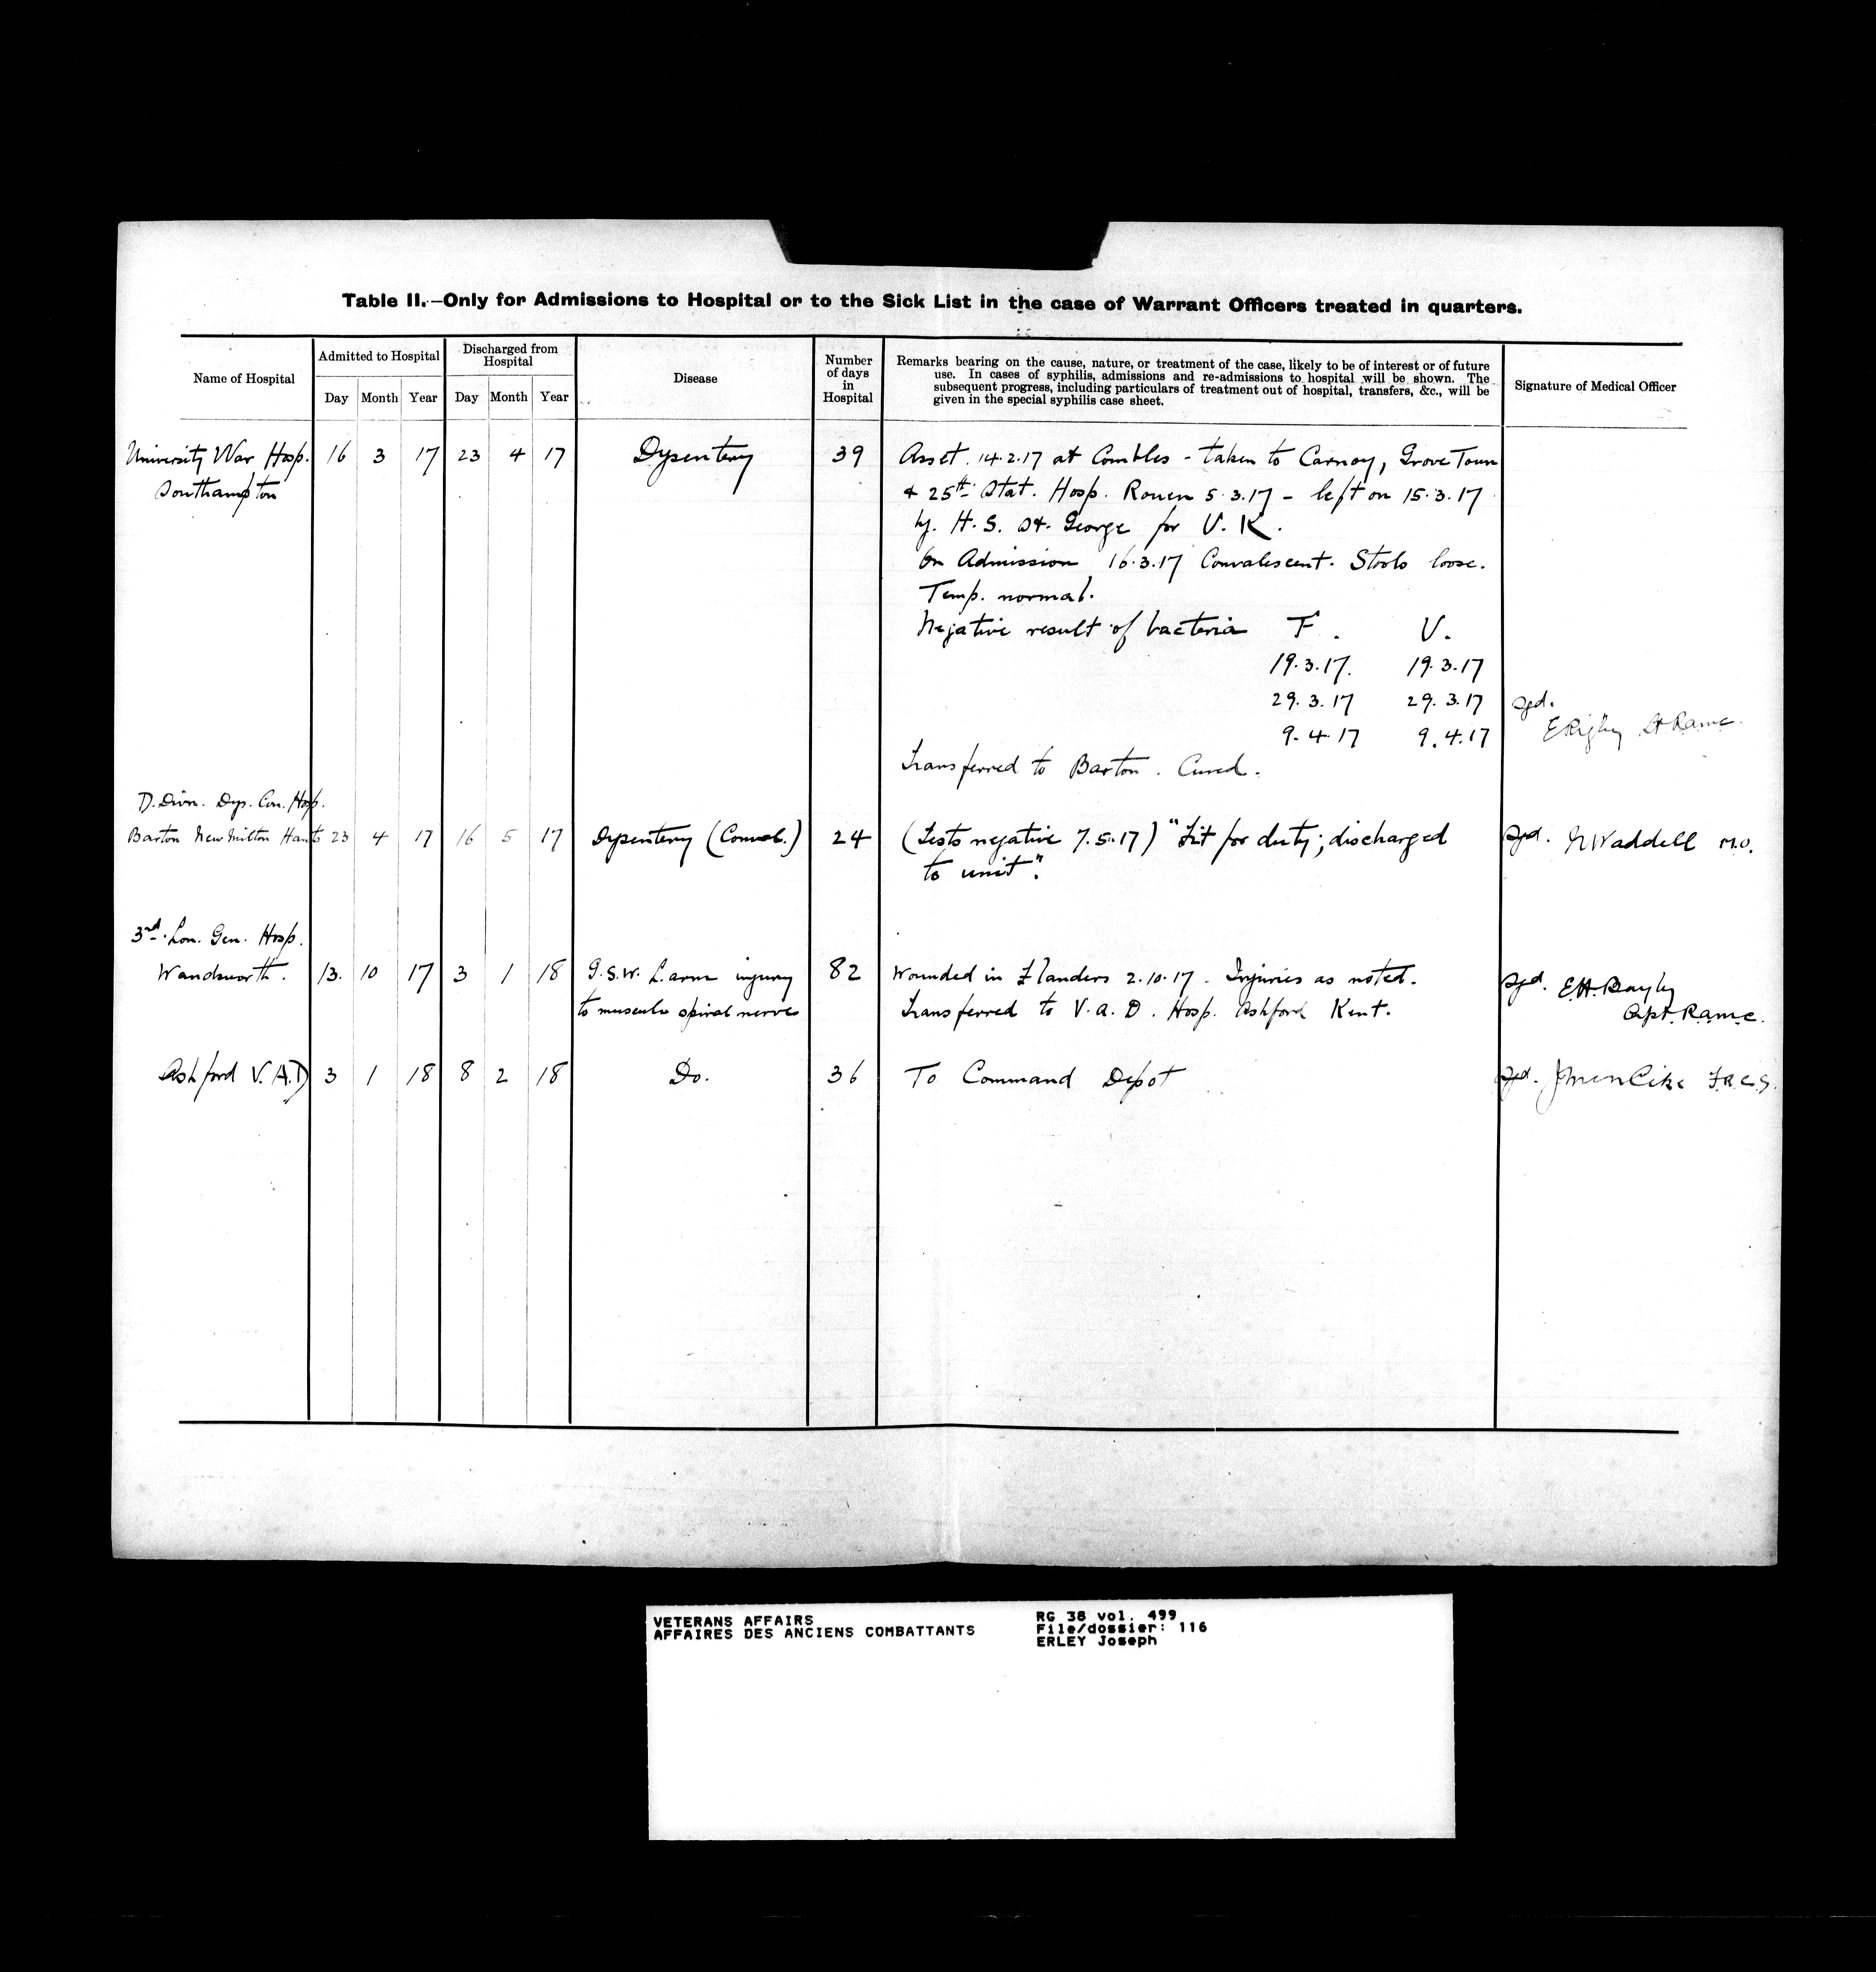 Table II.—Only for Admissions to Hospital or to the Sick List in the case of Warrant Officers treated in quarters.
Name of Hospital
Admitted to Hospital
Day Month Year
Discharged from Hospital
Day Month Year
Disease
Number of days in Hospital
Remarks bearing on the cause, nature, or treatment of the case, likely to be of interest or of future
use. In cases of syphilis, admissions and re-admissions to hospital will be shown. The
subsequent progress, including particulars of treatment out of hospital, transfers, &c., will be
given in the special syphilis case sheet.
Signature of Medical Officer
University War Hosp. 16 3 17 23 4 17 Dysentery 39 Onset 14.2.17 at Combles - taken to Carnoy, Grove Town
Southampton & 25th Stat. Hosp. Rouen 5.3.17 - left on 15.3.17
by H.S. St. George for U.K.
On Admission 16.3.17 Convalescent. Stools loose.
Temp. normal.
Negative result of bacteria F. U.
19.3.17. 19.3.17
29.3.17 29.3.17 sgd.
9.4.17 9.4.17 E Rigby Lt Ramc.
Transferred to Barton. Cured.
D. Divn. Dys. Con. Hosp.
Barton New Milton Hants 23 4 17 16 5 17 Dysentery (Conval.) 24 (Tests negative 7.5.17) "Fit for duty; discharged sgd. Waddell M.O.
to unit".
3rd. Lon. Gen. Hosp.
Wandsworth. 13. 10 17 3 1 18 G.S.W. L. arm injury 82 Wounded in Flanders 2.10.17. Injuries as noted. sgd. E.H. Bayly
to musculo spiral nerve Transferred to V.A.D. Hosp. Ashford Kent. Capt. Ramc.
Ashford V.A.D 3 1 18 8 2 18 Do. 36 To Command Depot sgd. F.R.C.S.
VETERANS AFFAIRS RG 38 vol. 499
AFFAIRES DES ANCIENS COMBATTANTS File/dossier: 116
ERLEY Joseph